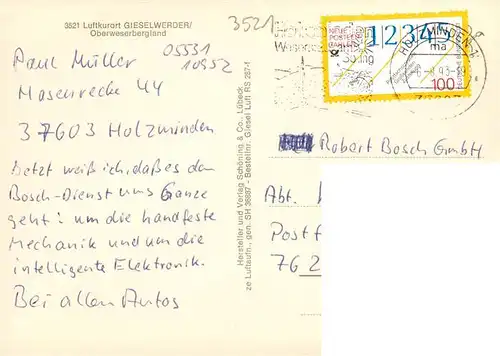 3521 Luftkurort GIESELWERDER/
Oberweserbergland
3521
Paul Müller
05531
10952
Masenrecke 44
37603 Holzminden
Jetzt weiß ich, daß es dem
Bosch-Dienst ums Ganze
geht: um die handfeste
Mechanik und um die
intelligente Elektronik.
Bei allen Autos
Hersteller und Verlag Schöning & Co., Lübeck
ze Luftaufn., gen. SH 36887 - Bestellnr. Giesel Luft RS 287-1
NEUE
POSTLEIT
ZAHLEN
12345
100
HOLZMINDEN
ma
93
Robert Bosch GmbH
Abt.
Postf
762